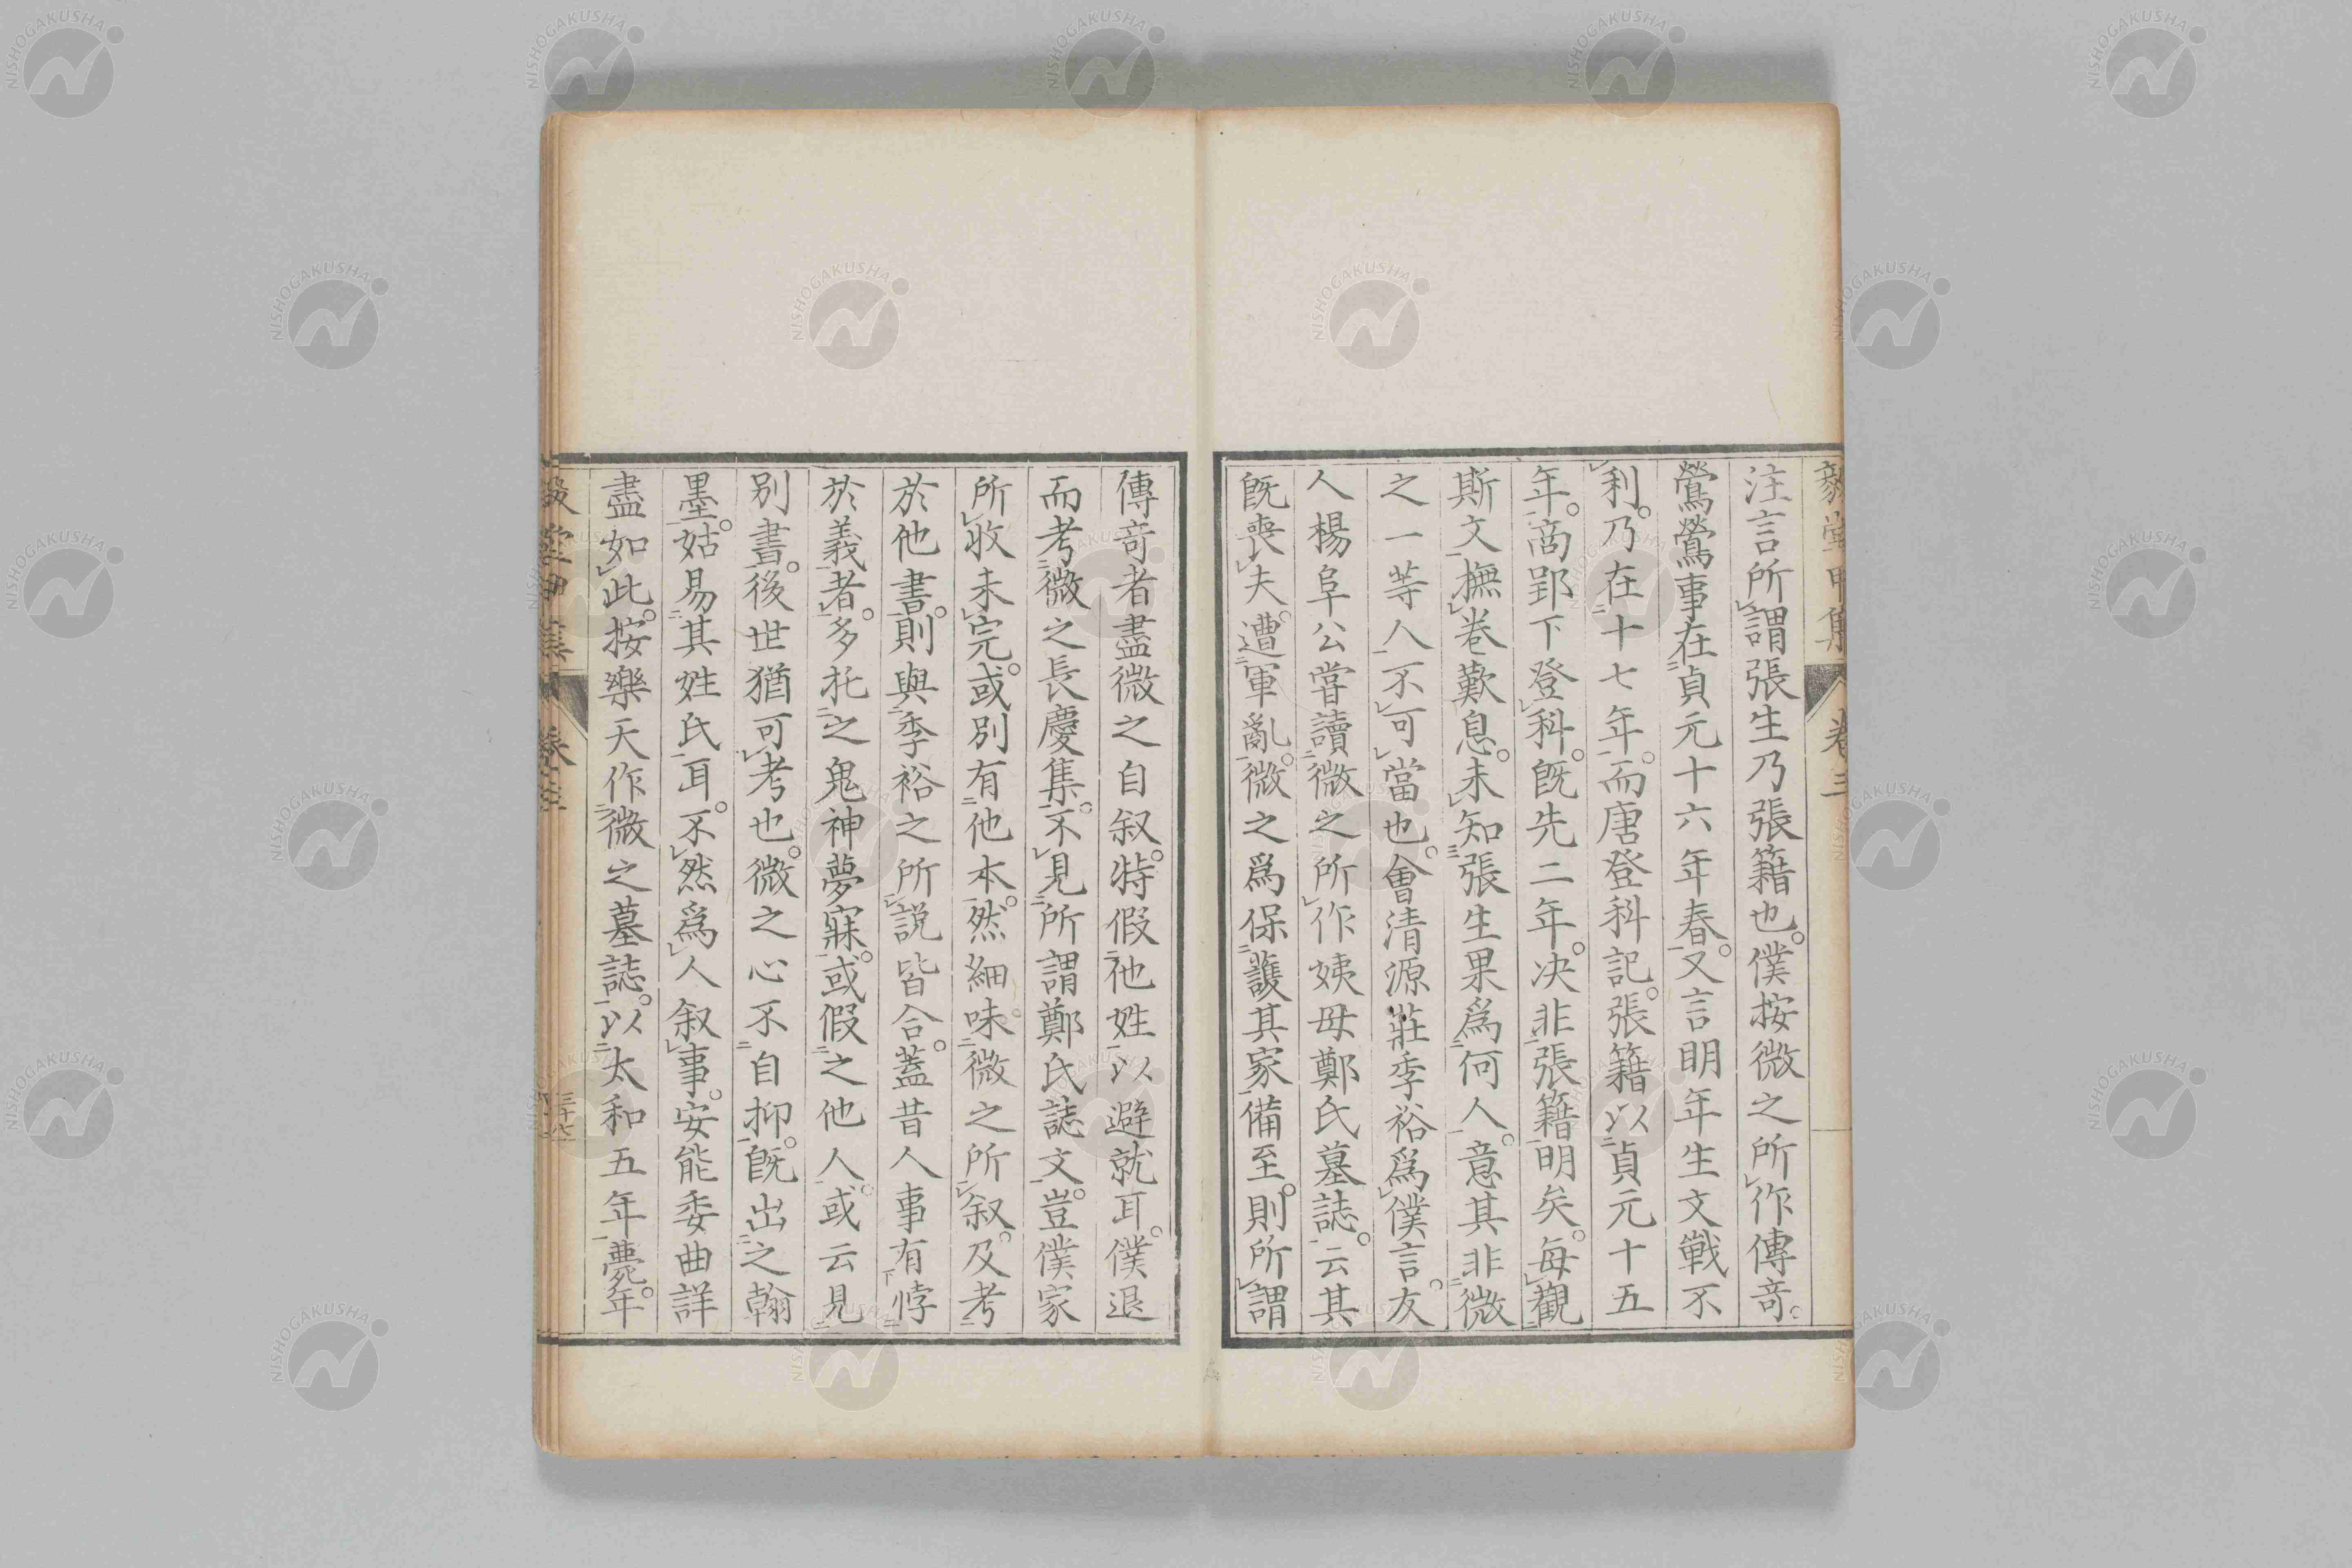 毅堂甲集 卷三
注言所謂張生乃張籍也。僕按微之所作傳奇。
鶯鶯事在貞元十六年春。又言明年生文戰不
利。乃在十七年。而唐登科記。張籍以貞元十五
年。商郢下登科。既先二年。决非張籍明矣。每觀
斯文撫卷歎息。未知張生果爲何人。意其非微
之一等人不可當也。會清源莊季裕爲僕言。友
人楊阜公嘗讀微之所作姨母鄭氏墓誌。云其
既喪夫。遭軍亂。微之爲保護其家備至。則所謂
傳奇者盡微之自叙。特假他姓以避就耳。僕退
而考微之長慶集。不見所謂鄭氏誌文。豈僕家
所收未完。或別有他本。然細味微之所叙。及考
於他書。則與季裕之所説皆合。蓋昔人事有悖
於義者。多托之鬼神夢寐。或假之他人。或云見
別書。後世猶可考也。微之心不自抑。既出之翰
墨。姑易其姓氏耳。不然爲人叙事。安能委曲詳
盡如此。按樂天作微之墓誌。以太和五年薨。年
毅堂甲集 卷三
NISHOGAKUSHA